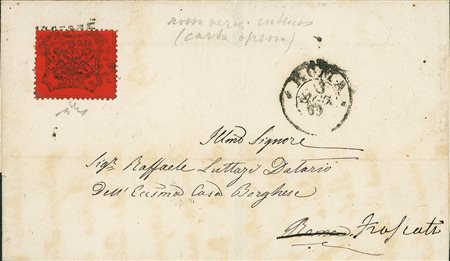 rosso verm. intenso
(carta opaca)
ROMA
69
Illmo Signore
Sigr. Raffaele Luttazi Datario
Dell' Eccma Casa Borghese
Roma Frascati